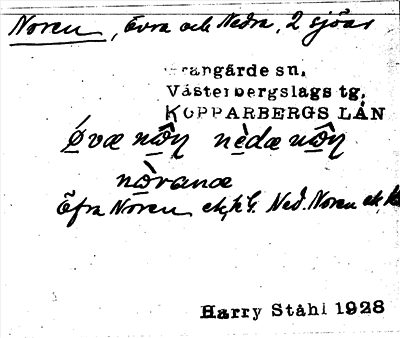 Noren, Övra och Nedra, 2 sjöar
Grangärde sn.
Västerbergslags tg.
KOPPARBERGS LÄN
Övæ nôŋ nèdæ nôŋ
nòranæ
Öfra Noren ek, k G. Ned. Noren ek, k
Harry Ståhl 1928